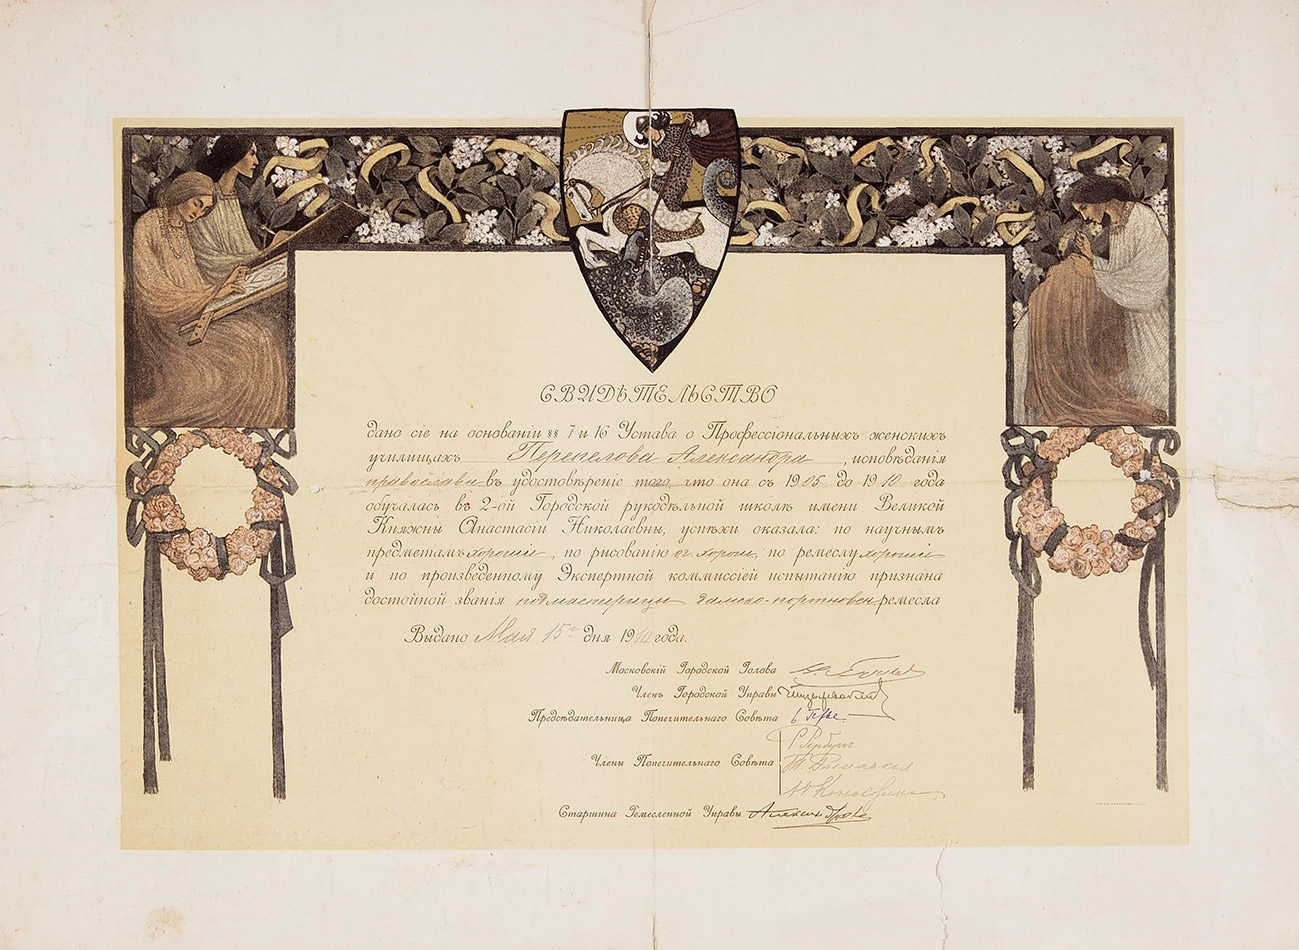 СВИДѢТЕЛЬСТВО
дано сіе на основаніи §§ 7 и 16 Устава о Профессіональныхъ женскихъ
училищахъ Перепелова Александра, исповѣданія
православн въ удостовѣреніе того, что она съ 1905 до 1910 года
обучалась въ 2-ой Городской рукодѣльной школѣ имени Великой
Княжны Анастасіи Николаевны, успѣхи оказала: по научнымъ
предметамъ хорошіе, по рисованію оч. хорош, по ремеслу хорошіе
и по произведенному Экспертной коммиссіей испытанію признана
достойной званія подмастерицы дамско-портновск ремесла
Выдано Мая 15 дня 1910 года.
Московскій Городской Голова
Членъ Городской Управы
Предсѣдательница Попечительнаго Совѣта
Члены Попечительнаго Совѣта
Старшина Ремесленной Управы